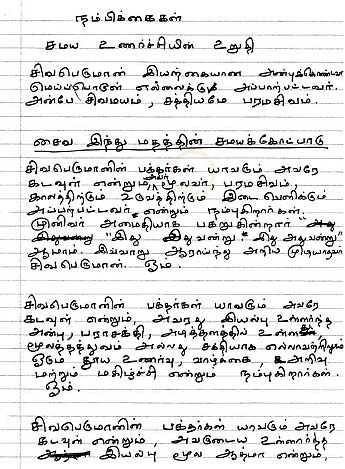 நம்பிக்கைகள்
சமய உணர்ச்சியின் உறுதி
சிவபெருமான் இயற்கையான அன்புக்கொண்டவர்
மெய்ப்பொருள் எல்லைக்கு அப்பாற்பட்டவர்.
அன்பே சிவமயம், சத்தியமே பரமசிவம்.
சைவ இந்து மதத்தின் சமயக்கோட்பாடு
சிவபெருமானின் பக்தர்கள் யாவரும் அவரே
கடவுள் என்றும், அவர் மூலவர், பரமசிவம்,
காலத்திற்கும் உருவத்திற்கும் இடைவெளிக்கும்
அப்பாற்பட்டவர் என்றும் நம்புகிறார்கள்.
முனிவர் அமைதியாக பகருகின்றார்
"இது இதுவன்று" "இது அதுவன்று"
ஆமாம். இவ்வாறு ஆராய்ந்து அறிய முடியாதவர்
சிவபெருமான். ஓம்.
சிவபெருமானின் பக்தர்கள் யாவரும் அவரே
கடவுள் என்றும், அவரது இயல்பு உள்ளார்ந்த
அன்பு, பராசக்தி, அடித்தளத்தில் உள்ள
மூலத்தத்துவம் அல்லது சக்தியாக எல்லாவற்றிலும்
ஓடும் தூய உணர்வு, வாழ்க்கை, அறிவு
மற்றும் மகிழ்ச்சி என்றும் நம்புகிறார்கள்.
ஓம்.
சிவபெருமானின் பக்தர்கள் யாவரும் அவரே
கடவுள் என்றும், அவருடைய உள்ளார்ந்த
இயல்பு மூல ஆத்மா என்றும்,